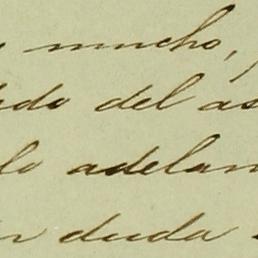 mucho,
del as
lo adelan
duda